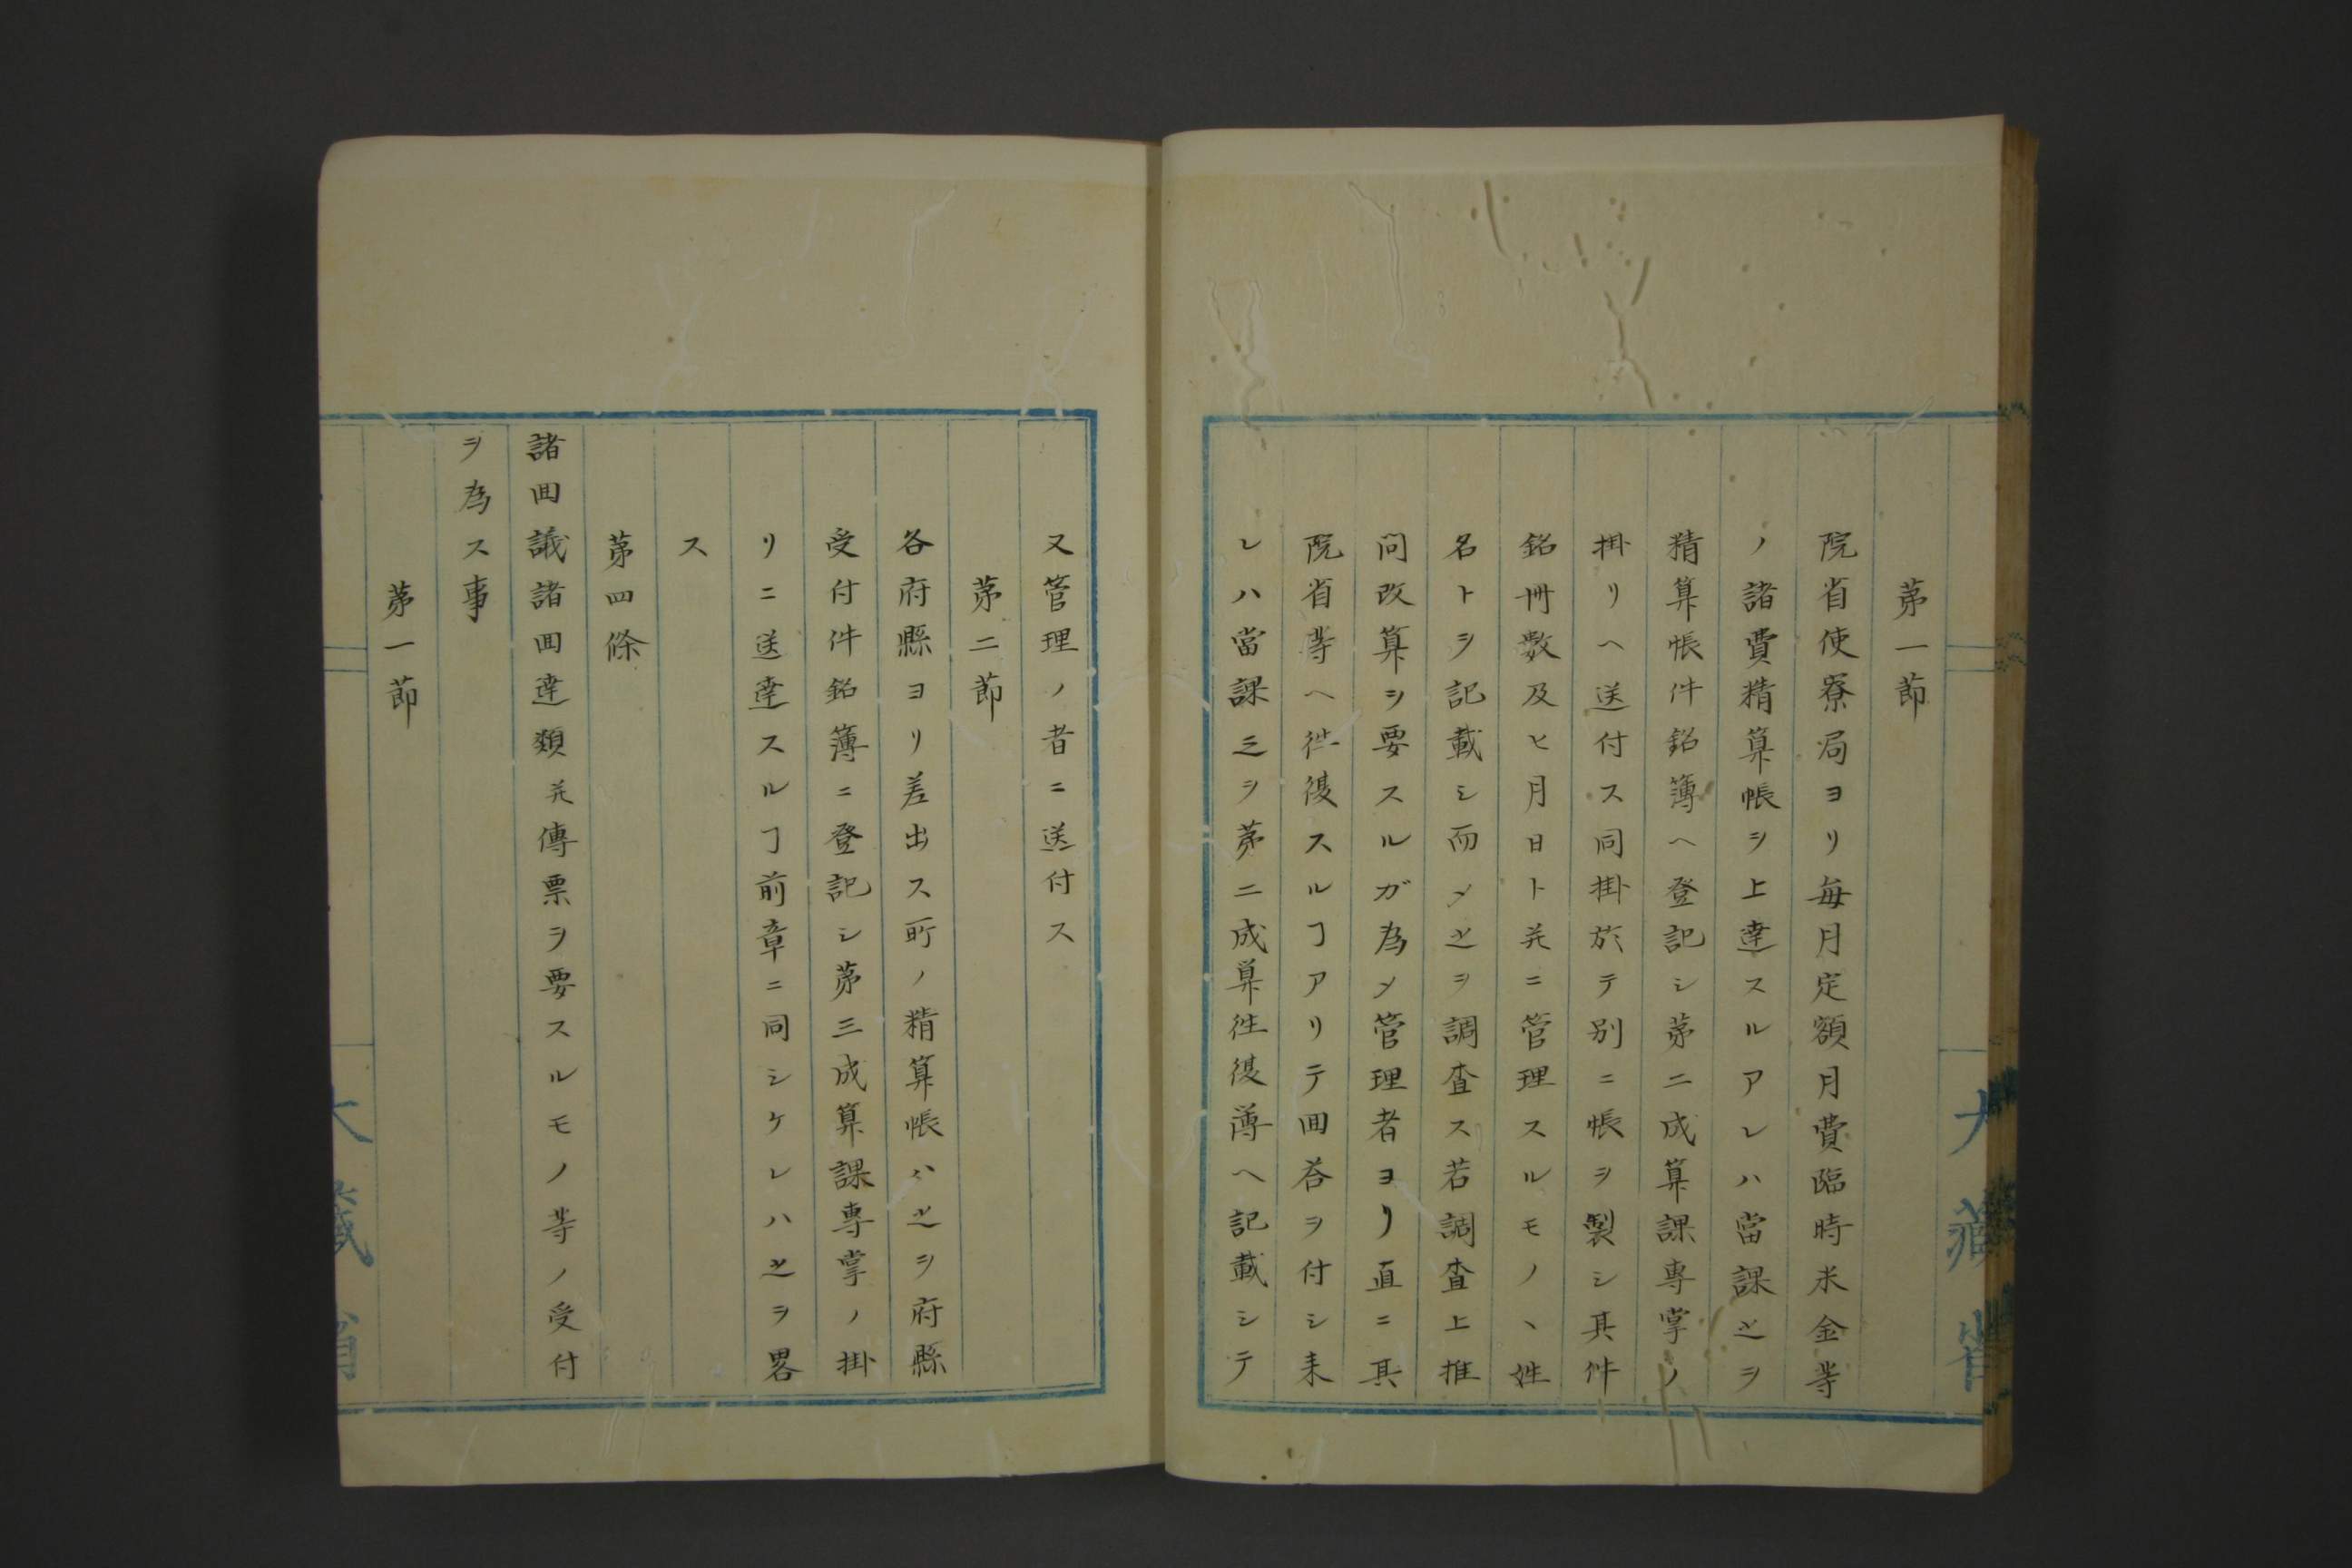 第一節
院省使寮局ヨリ毎月定額月費臨時米金等
ノ諸費精算帳ヲ上達スルアレハ當課之ヲ
精算帳件銘簿ヘ登記シ第二成算課專掌ノ
掛リヘ送付ス同掛於テ別ニ帳ヲ製シ其件
銘冊數及ヒ月日ト并ニ管理スルモノヽ姓
名トヲ記載シ而〆之ヲ調査ス若調査上推
問改算ヲ要スルガ為メ管理者ヨリ直ニ其
院省等ヘ徃復スルヿアリテ囬荅ヲ付シ来
レハ當課之ヲ第二成算徃復簿ヘ記載シテ
又管理ノ者ニ送付ス
第二節
各府縣ヨリ差出ス所ノ精算帳ハ之ヲ府縣
受付件銘簿ニ登記シ第三成算課專掌ノ掛
リニ送達スルヿ前章ニ同シケレハ之ヲ畧
ス
第四條
諸囬議諸囬達類并傳票ヲ要スルモノ等ノ受付
ヲ為ス事
第一節
大藏省